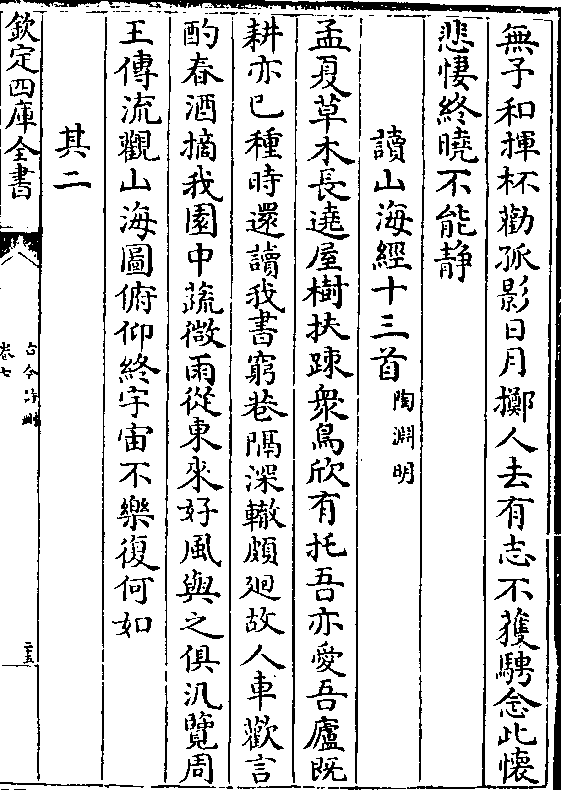 無子和揮杯勸孤影日月擲人去有志不獲騁念此懷
悲悽終曉不能静
讀山海經十三首 陶淵明
孟夏草木長遶屋樹扶疎衆鳥欣有托吾亦愛吾廬既
耕亦已種時還讀我書窮巷隔深轍頗廻故人車歡言
酌春酒摘我園中蔬微雨從東來好風與之俱汎覽周
王傳流觀山海圖俯仰終宇宙不樂復何如
其二
欽定四庫全書
卷七
二十五